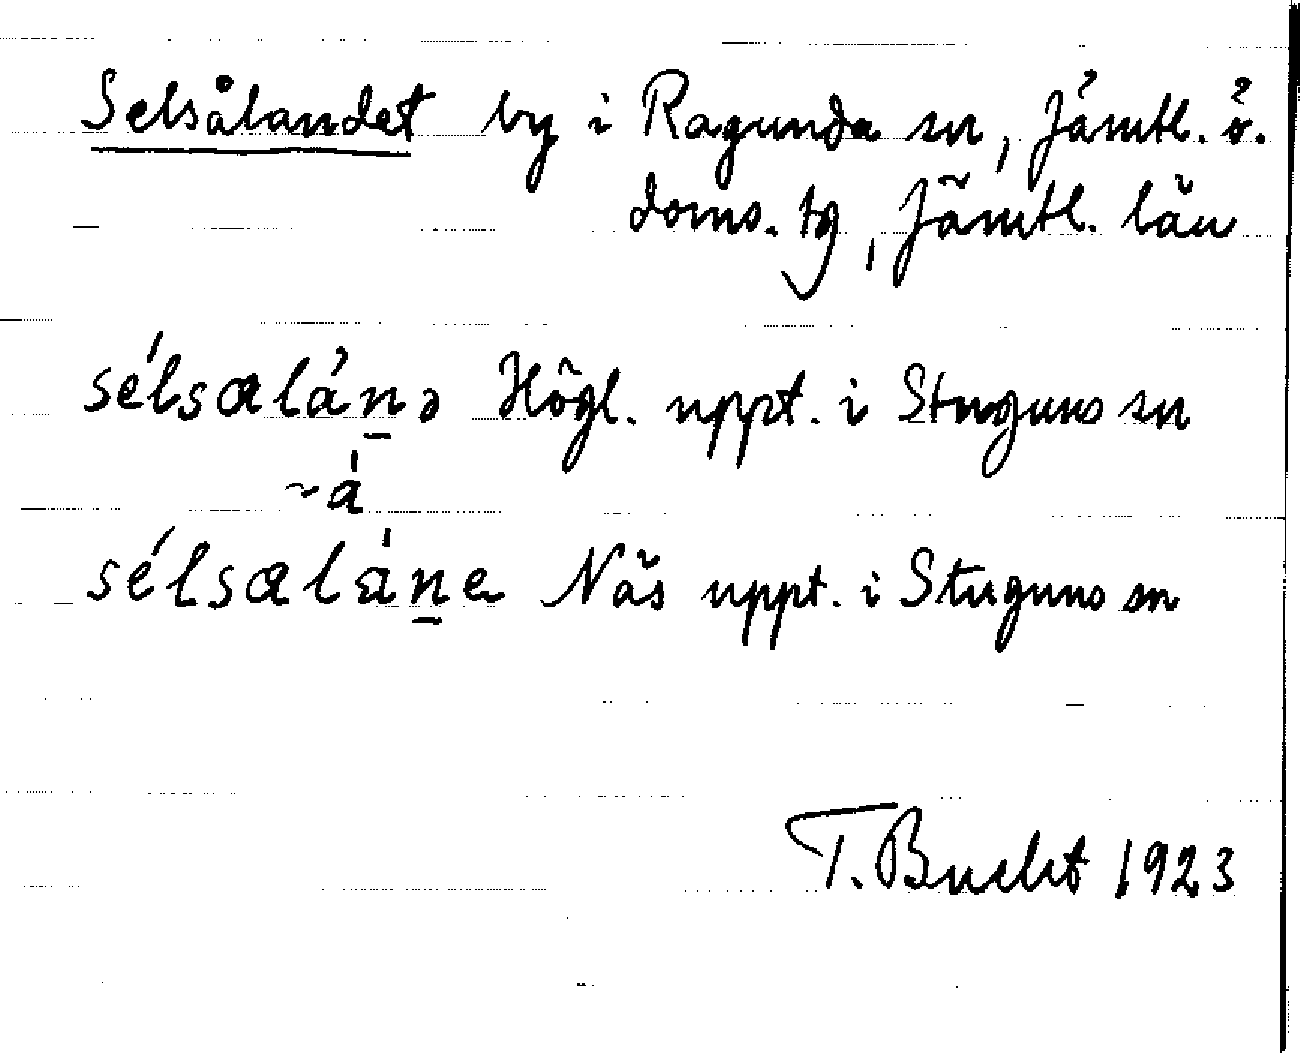 Selsålandet by i Ragunda sn, Jämtl. ö.
doms. tg, Jämtl. län
sélsaláṉə Högl. uppt. i Stuguns sn
~á
sélsaláṉe Näs uppt. i Stuguns sn
T. Bucht 1923